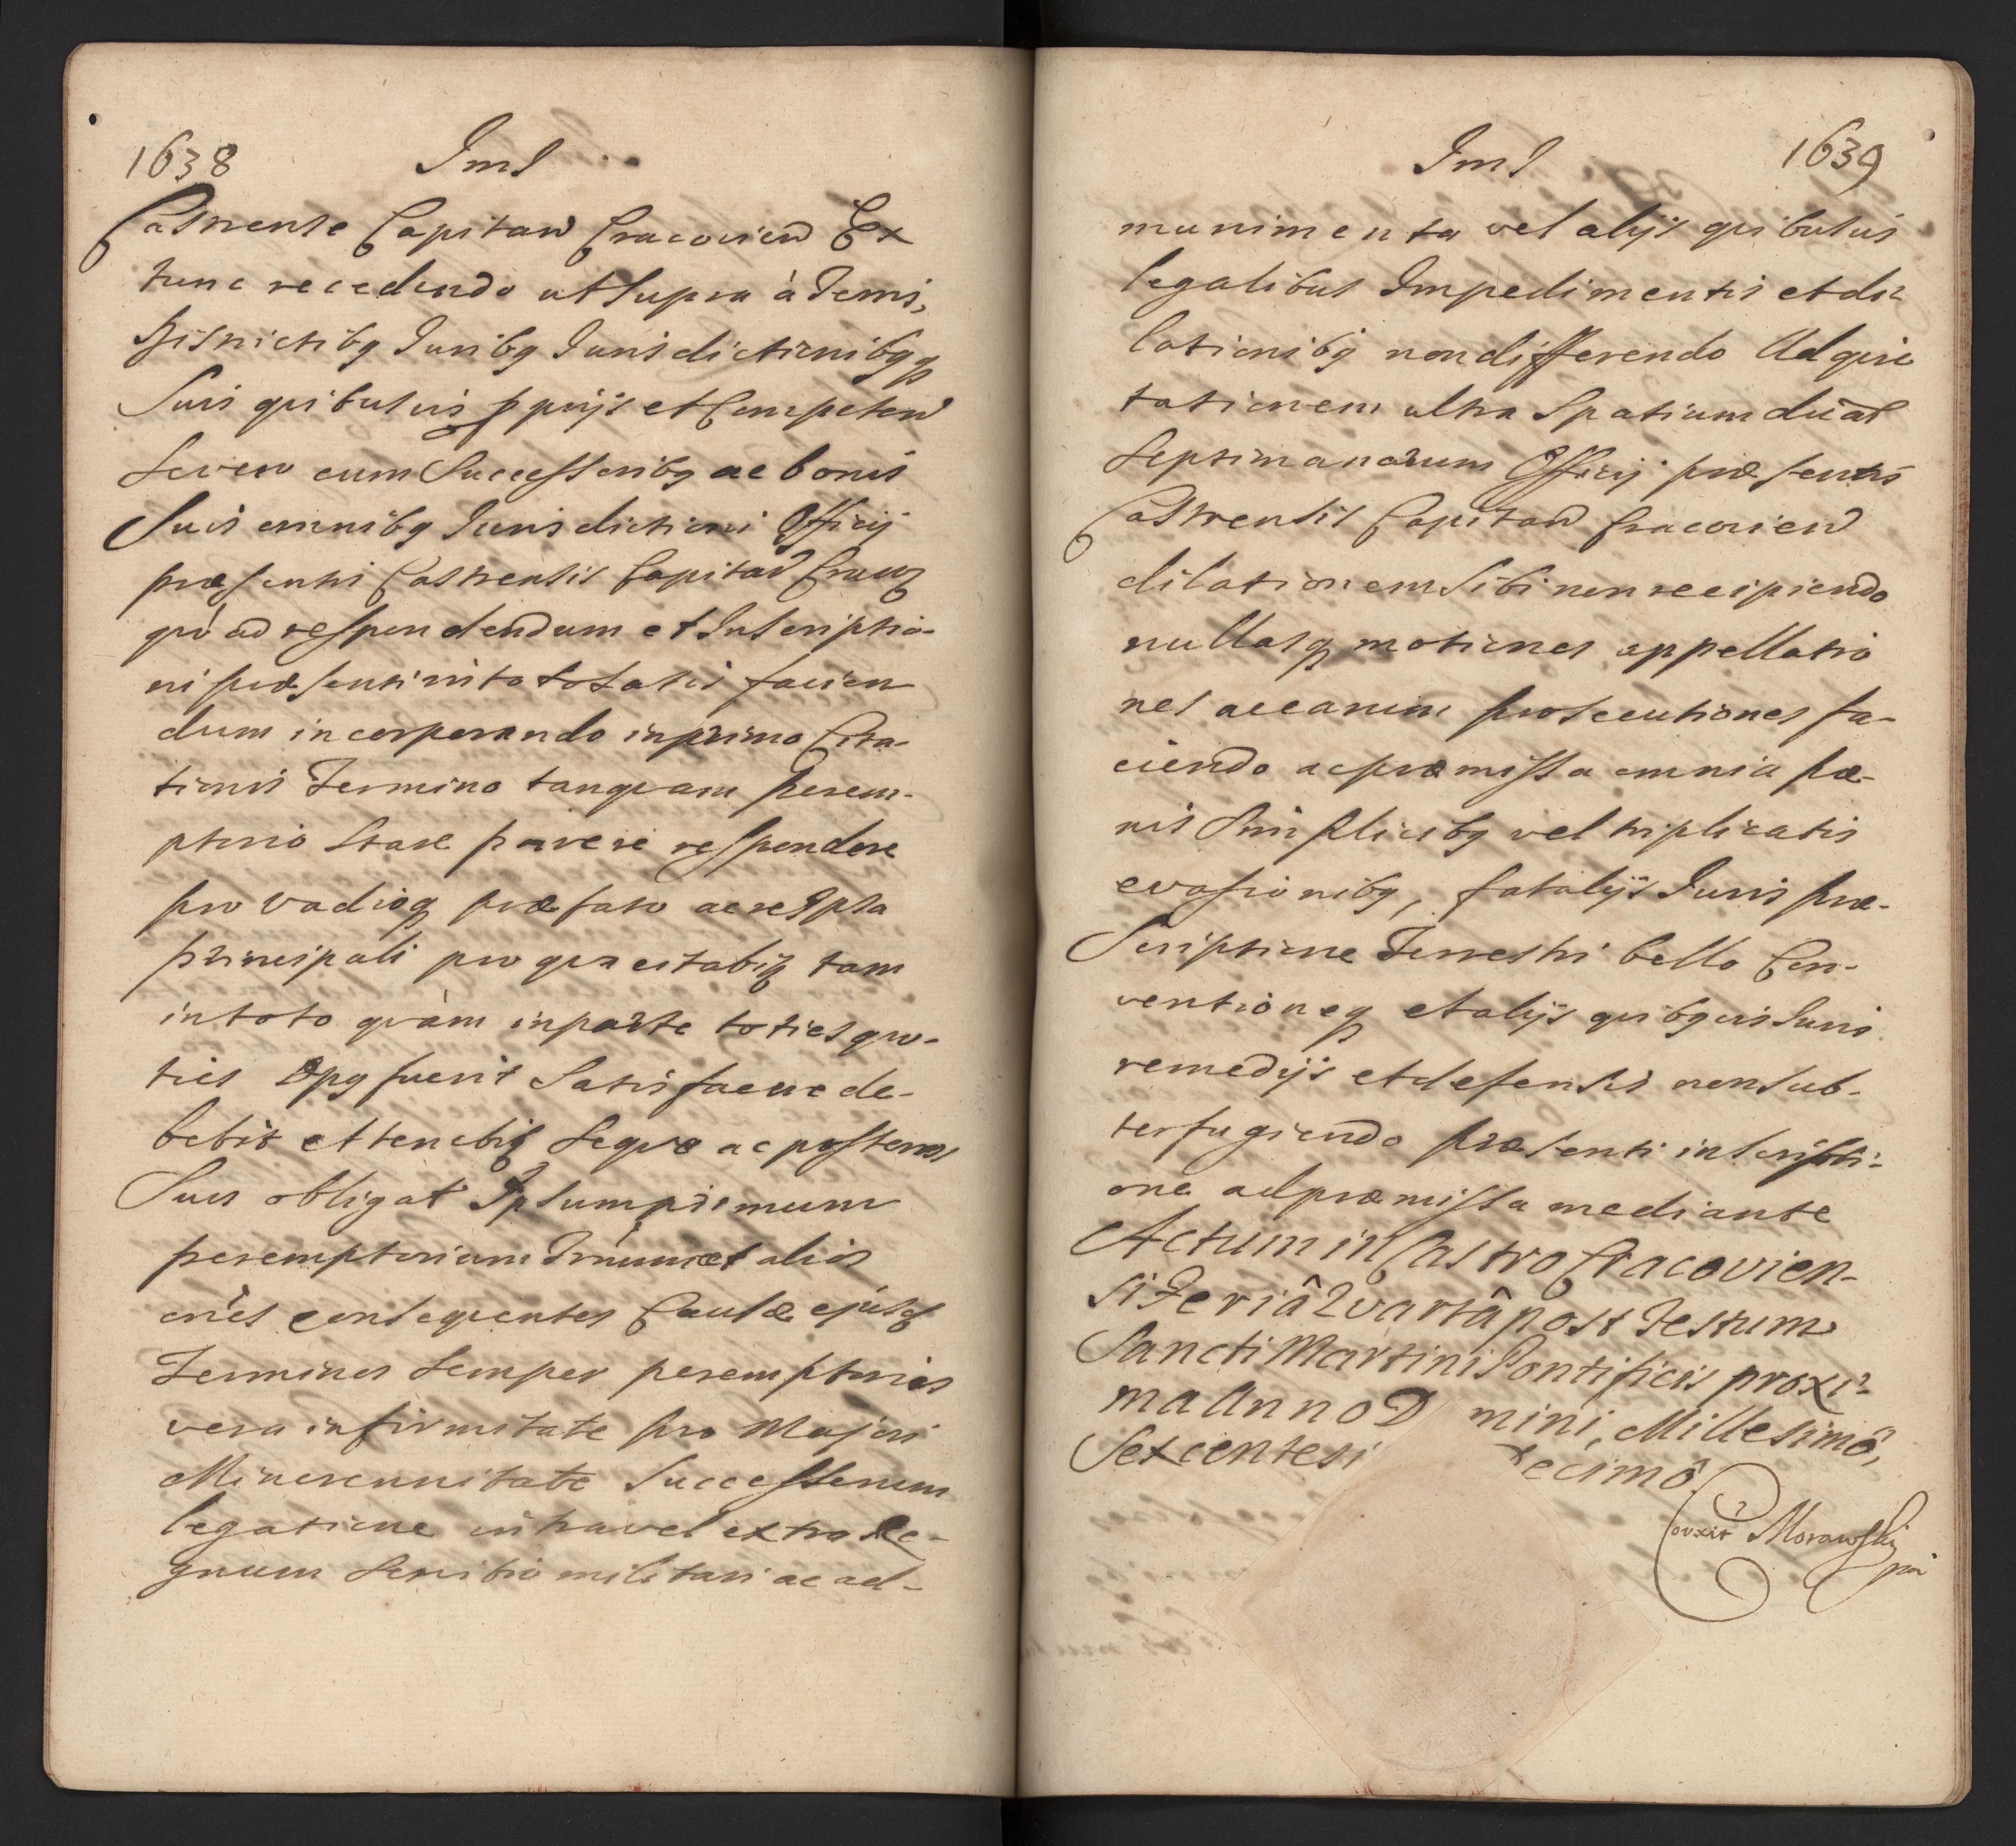 1638 Ims
Castrense Capitan Cracovien Ex
tunc recedendo ut supra à Terris,
Districtibq Juribq Jurisdictionibqq
Suis quibusvis pprijs et Competen
Seven cum Successoribq ac bonis
Suis omnibq Jurisdictioni Officij
præsentis Castrensis Capitan Cracov
quò ad respondendum et Inscriptio-
ni præsenti satis facien
dum incorporando in primo Cita-
tionis Termino tanquam perem-
ptorio Stare parere respondere
pro vadioq præfato ac re Ipsa
principali pro qua citabit tam
in toto quàm in parte toties quo-
ties Opq fuerit Satisfacere de-
bebit et tenebit Seqve ac posteros
Suos obligat Ipsum primum
peremptorium Trnum et alios
ones consequentes Causæ ejusd
Terminos Semper peremptorios
vera infirmitate pro Majori
Minorennitate Successorum
legatione intra vel extra Re-
gnum Servitio militari ac ad-
Ims 1639
munimenta vel alijs quibusvis
legalibus Impedimentis et di-
lationibq non differendo Ad quie
tationem ultra Spatium duar
Septimanarum Officij præsentis
Castrensis Capitan Cracovien
dilationem Sibi non recipiendo
nullasq motiones appellatio
nes ac earum prosecutiones fa-
ciendo ac præmissa omnia pæ-
nis Simplicibq vel triplicatis
evasionibq, fatalijs Juris præ-
Scriptione Terrestri bello Con-
ventioneq et alijs quibqvis Juris
remedijs et defensis non Sub-
terfugiendo præsenti inscripti-
one ad præmissa mediante
Actum in Castro Cracovien-
si Feriâ Quartâ post Festum
Sancti Martini Pontificis proxi-
ma Anno D mini, Millesimô,
Sexcentesi ecimô.
Correxit Morawski
mp